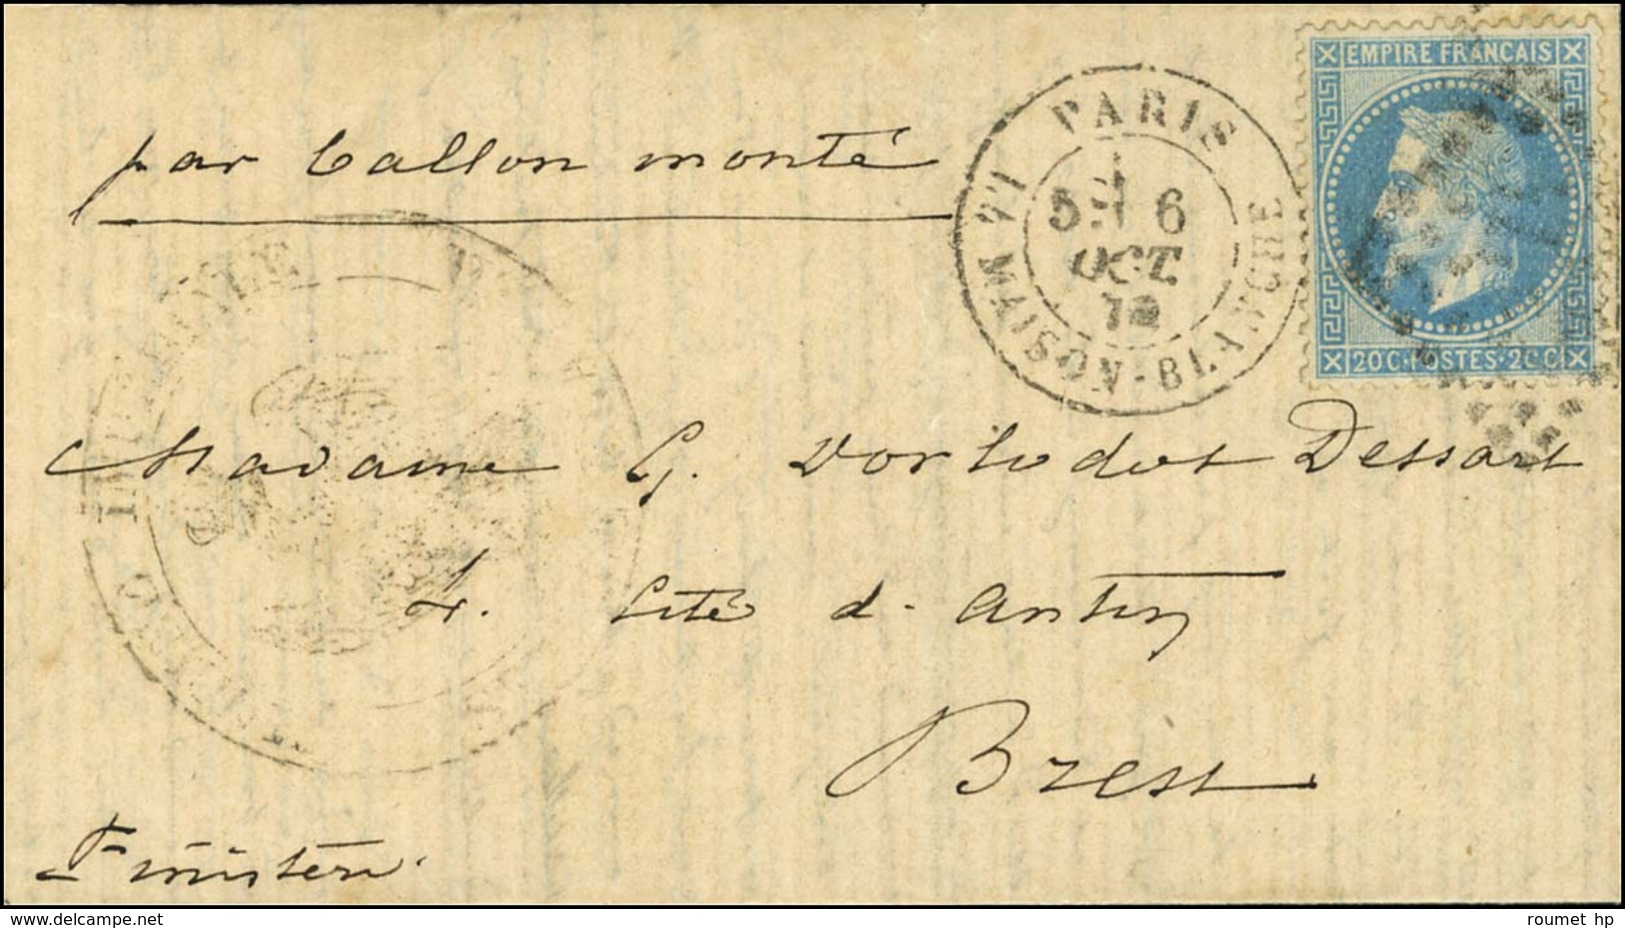 EMPIRE FRANCAIS
par ballon monté
PARIS
5E 6
OCT.
70
LA MAISON-BLANCHE
20 C. POSTES 20 C
Madame G. Dessart
4. Cité d. Antin
Brest
Finistère
www.delcampe.net
roumet hp